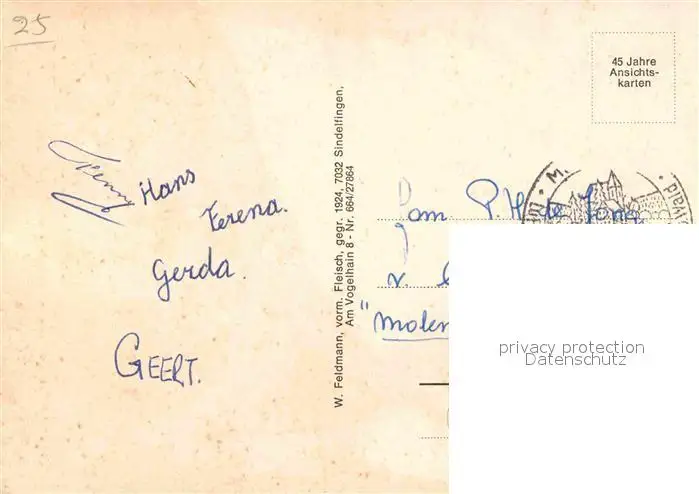 25
45 Jahre
Ansichts-
karten
Hans
Verena.
Gerda.
GEERT.
W. Feldmann, vorm. Fleisch, gegr. 1924, 7032 Sindelfingen,
Am Vogelhain 8 - Nr. 664/27864
Fam P. H. de Jong
v.
"Molen
M.
wald
privacy protection
Datenschutz